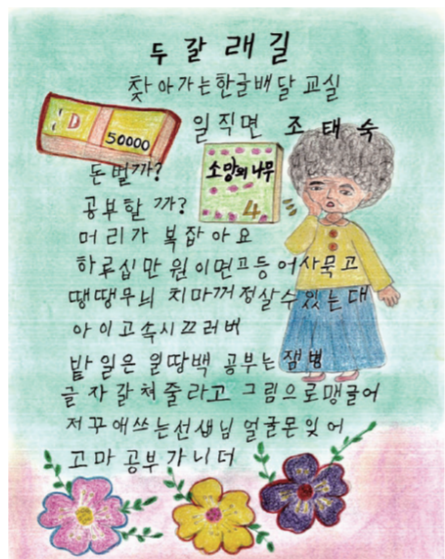 두 갈 래 길
찾아가는한글배달 교실
일직면 조 태 숙
D
50000
돈벌까?
소망의 나무
4
공부할 까?
머리가 복잡아요
하루십만 원이면고등어사묵고
땡땡무늬 치마꺼정살수 있는대
아이고속시끄러버
밭일은 원땅백 공부는 잼병
글자갈쳐줄라고 그림으로맹글어
저꾸애쓰는선생님 얼굴몬잊어
고마 공부 가니더